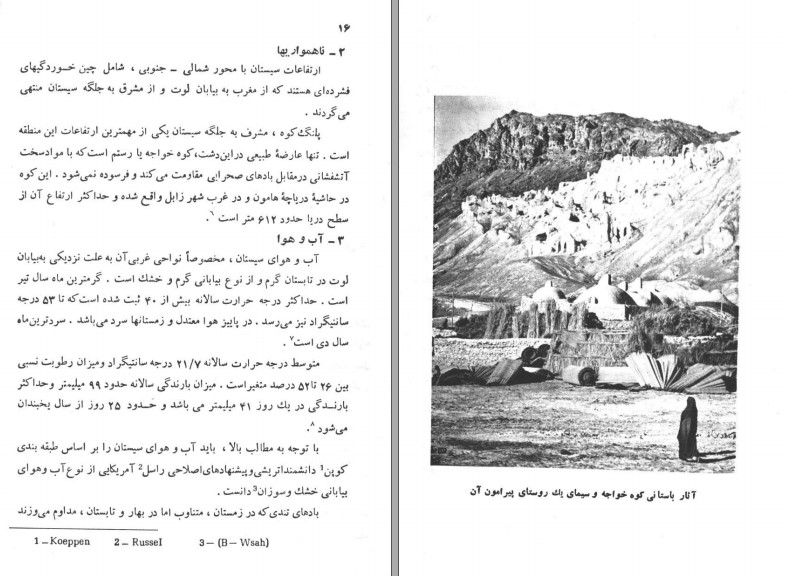 ۱۶
۲ ـ ناهمواریها
ارتفاعات سیستان با محور شمالی ـ جنوبی ، شامل چین خسوردگیهای
فشرده‌ای هستند که از مغرب به بیابان لوت و از مشرق به جلگه سیستان منتهی
می‌گردند .
پلنگ‌کوه ، مشرف به جلگه سیستان یکی از مهمترین ارتفاعات این منطقه
است . تنها عارضهٔ طبیعی دراین‌دشت، کوه خواجه یا رستم است‌که با موادسخت
آتشفشانی درمقابل بادهای صحرایی مقاومت می‌کند و فرسوده نمی‌شود . این کوه
در حاشیهٔ دریاچهٔ هامون و در غرب شهر زابل واقع شده و حداکثر ارتفاع آن از
سطح دریا حدود ۶۱۲ متر است .۶
۳ ـ آب و هوا
آب و هوای سیستان ، مخصوصاً نواحی غربی‌آن به علت نزدیکی به‌بیابان
لوت در تابستان گرم و از نوع بیابانی گرم و خشك است . گرمترین ماه سال تیر
است . حداکثر درجه حرارت سالانه بیش از ۴۰ ثبت شده است‌که تا ۵۳ درجه
سانتیگراد نیز می‌رسد . در پاییز هوا معتدل و زمستانها سرد می‌باشد . سردترین‌ماه
سال دی است۷ .
متوسط درجه حرارت سالانه ۲۱/۷ درجه سانتیگراد ومیزان رطوبت نسبی
بین ۲۶ تا ۵۲ درصد متغیراست . میزان بارندگی سالانه حدود ۹۹ میلیمتر وحداکثر
بارنـدگی در یك روز ۴۱ میلیمتر می باشد و حـدود ۲۵ روز از سال یخبندان
می‌شود۸ .
با توجه به مطالب بالا ، باید آب و هوای سیستان را بر اساس طبقه بندی
کوپن1 دانشمنداتریشی‌وپیشنهادهای‌اصلاحی راسل2 آمریکایی از نوع‌آب وهوای
بیابانی خشك وسوزان3دانست .
بادهای تندی‌که در زمستان ، متناوب اما در بهار و تابستان ، مداوم می‌وزند
1 _ Koeppen 2 _ Russel 3 _ (B _ Wsah)
آثار باستانی کوه خواجه و سیمای یك روستای پیرامون آن